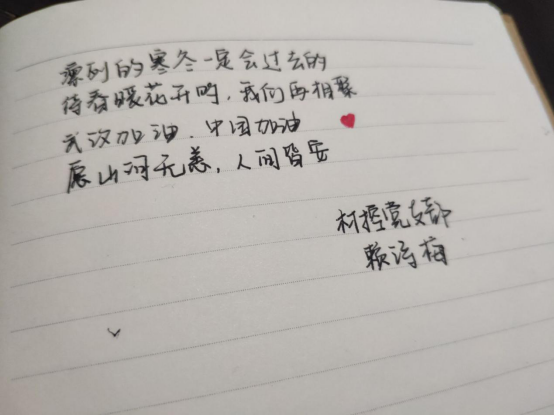 凛冽的寒冬一定会过去的
待春暖花开时，我们再相聚
武汉加油．中国加油
愿山河无恙，人间皆安
材控党支部
赖诗梅